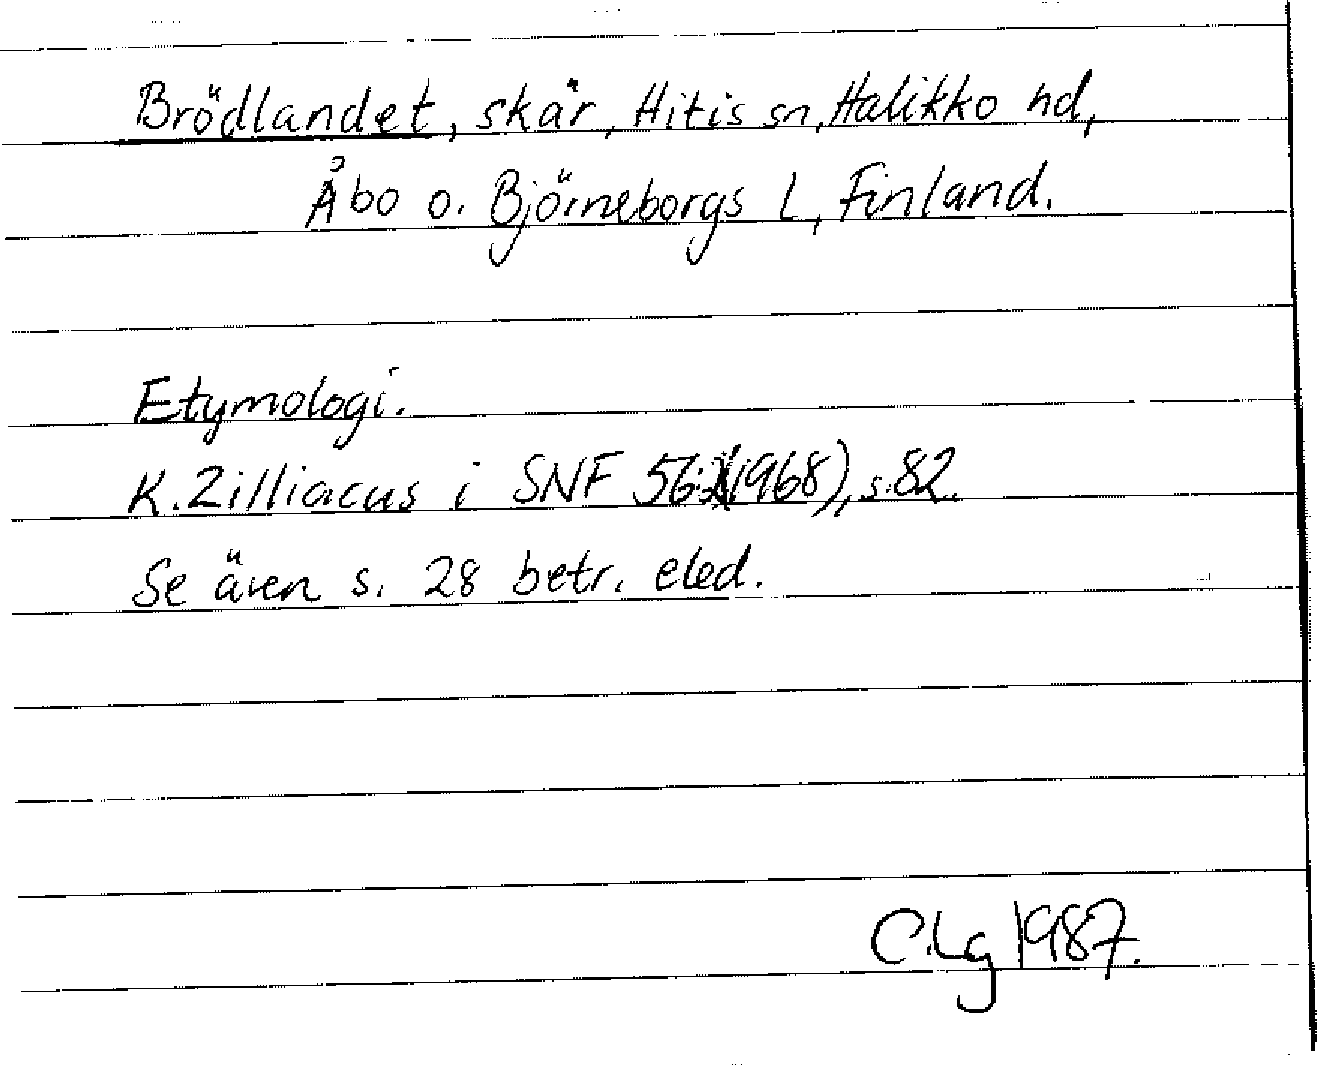 Brödlandet, skär, Hitis sn, Halikko hd,
Åbo o. Björneborgs L, Finland.
Etymologi.
K. Zilliacus i SNF 56 (1968), s. 82.
Se även s. 28 betr. eled.
C.Lg 1987.